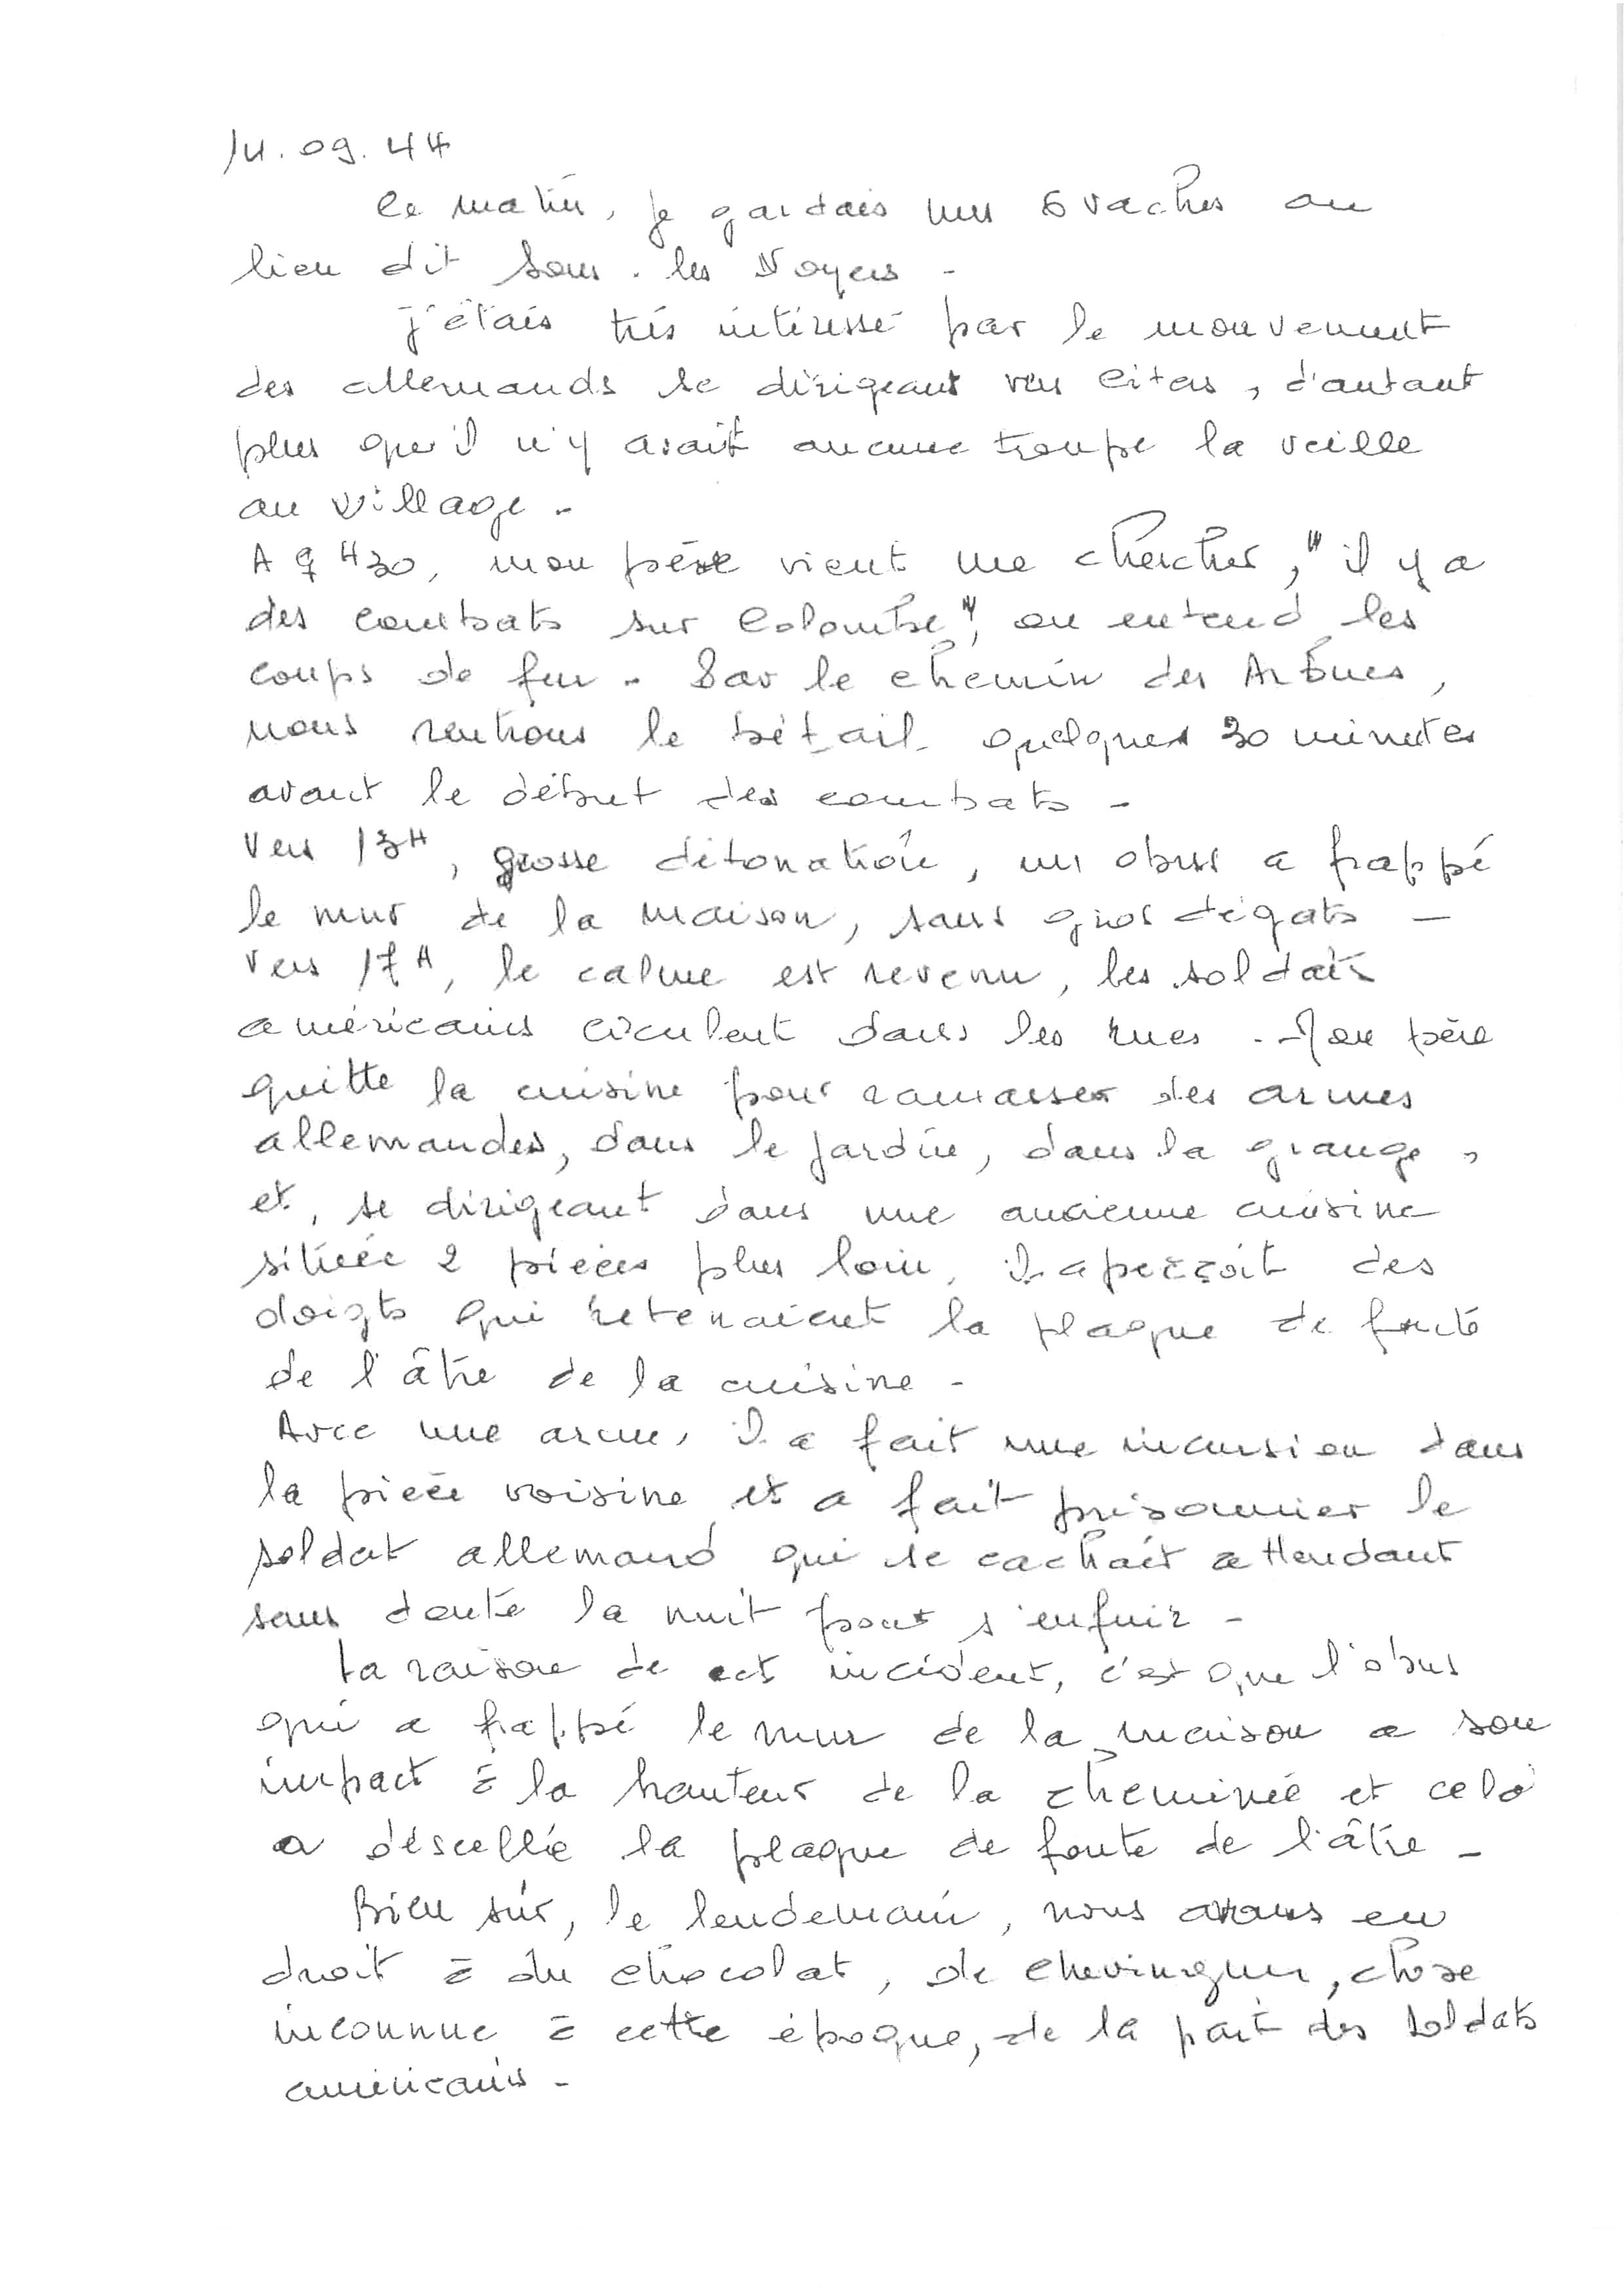 14.09.44
Ce matin, je gardais mes 6 vaches au
lieu dit sous les Noyers -
j'étais très intéressé par le mouvement
des allemands se dirigeant vers Citers, d'autant
plus qu'il n'y avait aucune troupe la veille
au village -
A 9H30, mon père vient me chercher, "il y a
des combats sur Colombe", on entend les
coups de feu - Par le chemin des
nous rentrons le bétail quelques 30 minutes
avant le début des combats -
Vers 13H, grosse détonation, un obus a frappé
le mur de la maison, sans gros dégats -
Vers 17H, le calme est revenu, les soldats
américains circulent dans les rues - Mon père
quitte la cuisine pour ramasser des armes
allemandes, dans le jardin, dans la grange,
et, se dirigeant dans une ancienne cuisine
située 2 pièces plus loin, il aperçoit des
doigts qui retenaient la plaque de fonte
de l'âtre de la cuisine -
Avec une arme, il a fait une incursion dans
la pièce voisine et a fait prisonnier le
soldat allemand qui se cachait attendant
sans doute la nuit pour s'enfuir -
La raison de cet incident, c'est que l'obus
qui a frappé le mur de la maison a son
impact à la hauteur de la cheminée et celà
a descellé la plaque de fonte de l'âtre -
Bien sûr, le lendemain, nous avons eu
droit à du chocolat, de chevingum, chose
inconnue à cette époque, de la part des soldats
américains -